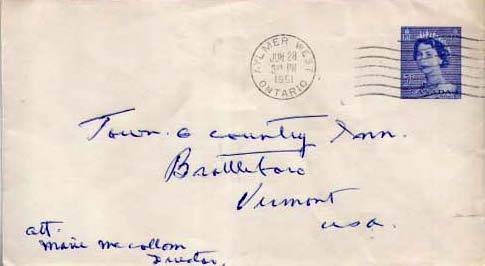 AYLMER WEST
JUN 28
PM
1961
ONTARIO
CANADA
Town & country Inn.
Brattleboro
Vermont
usa.
att:
Marie McCollom